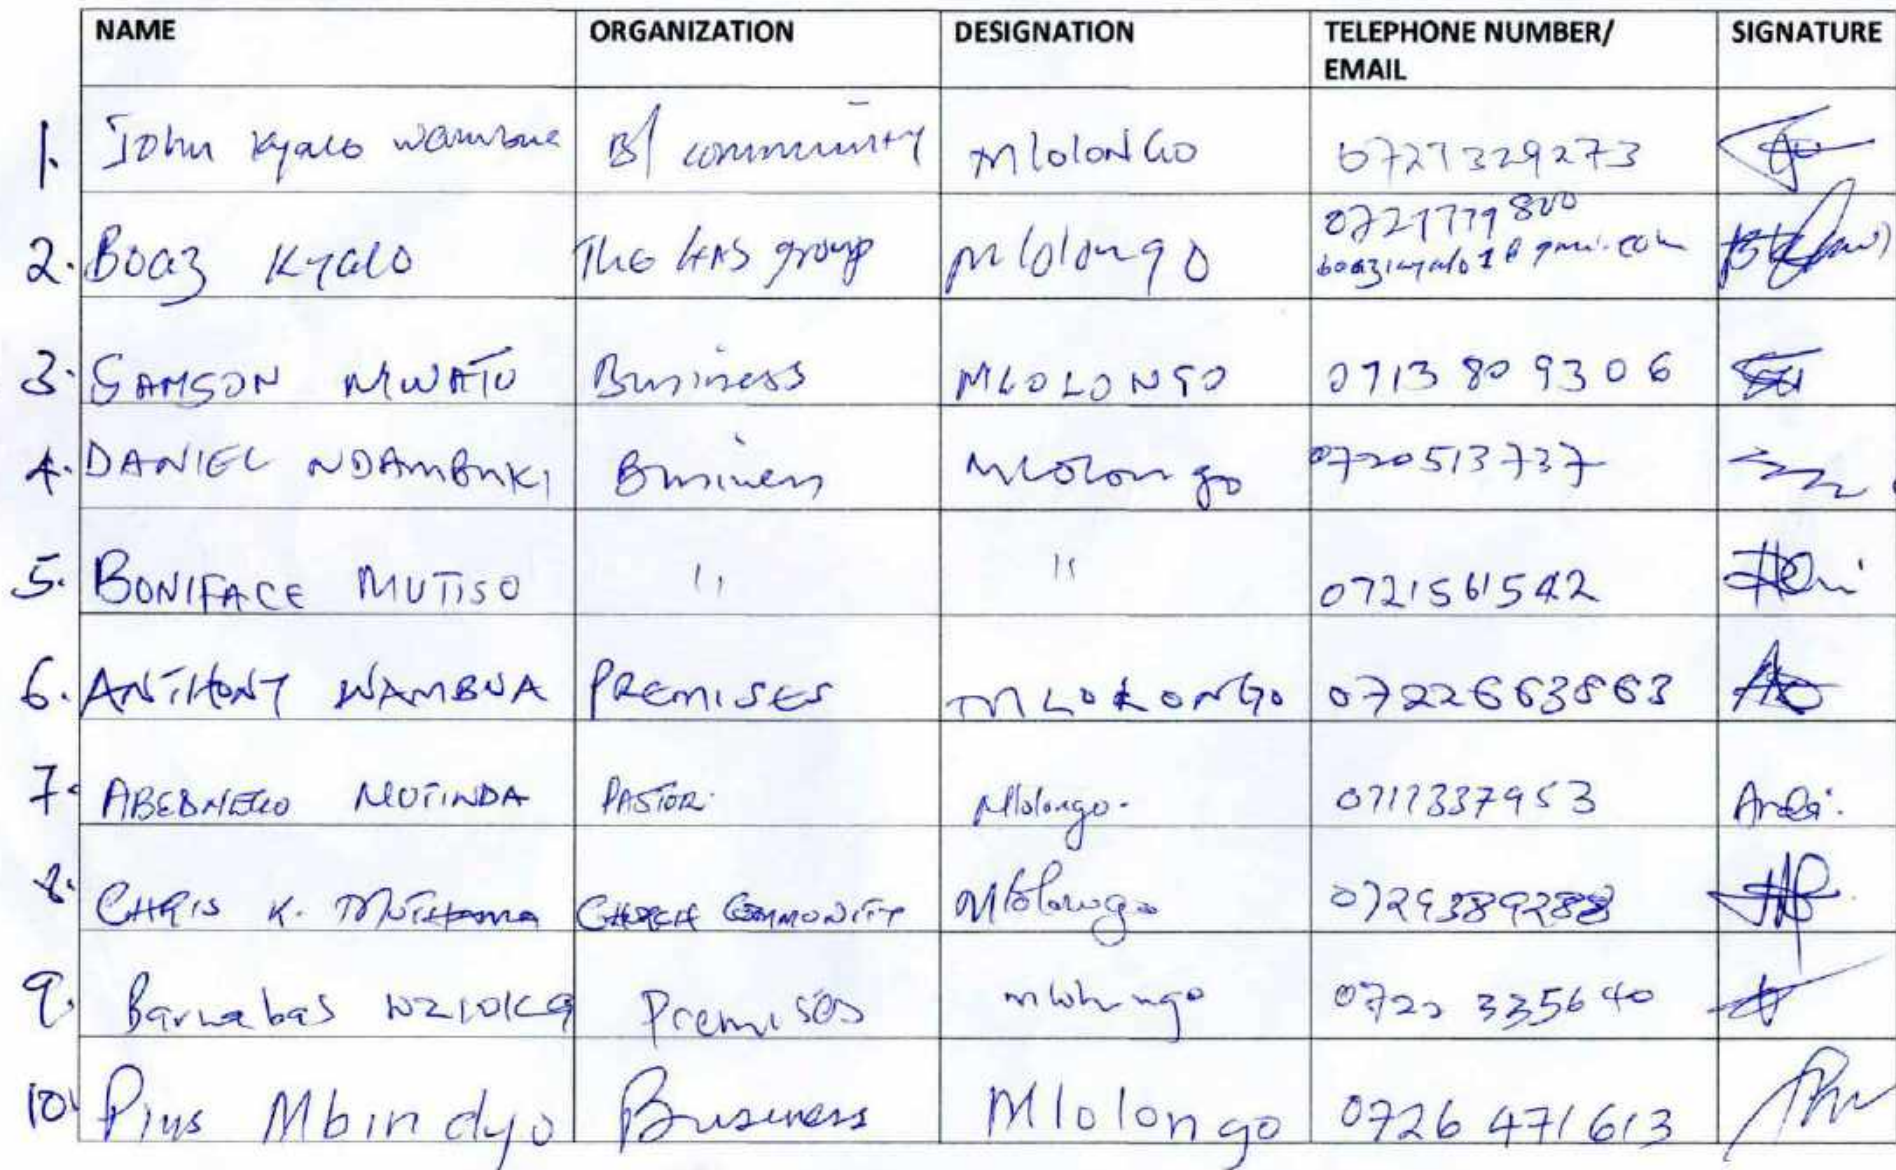 NAME ORGANIZATION DESIGNATION TELEPHONE NUMBER/ EMAIL SIGNATURE
1. John Kyalo Wambua B/ community Mlolongo 0727329273
2. Boaz Kyalo The group Mlolongo 0721779800
3. SAMSON MWATU Business MLOLONGO 0713 809306
4. DANIEL NDAMBUKI Business Mlolongo 0720513737
5. BONIFACE MUTISO " " 0721561542
6. ANTHONY WAMBUA PREMISES MLOLONGO 0722663863
7. ABEDNEGO MUTINDA PASTOR. Mlolongo. 0717337953
8. CHRIS K. MUTHAMA CHURCH COMMUNITY Mlolongo 0729389288
9. Barnabas NZIOKA Premises mlolongo 0722 335640
10. Pius Mbindyo Business Mlolongo 0726 471613